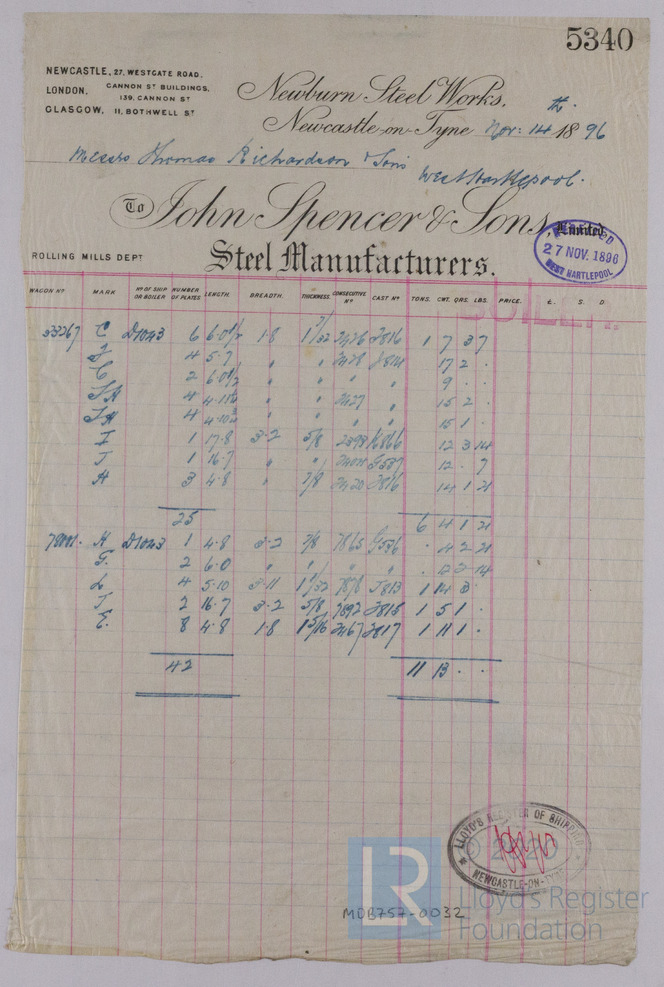 5340
NEWCASTLE, 27, WESTGATE ROAD.
LONDON, CANNON ST BUILDINGS, 139, CANNON ST
GLASGOW, 11, BOTHWELL ST
Newburn Steel Works,
Newcastle-on-Tyne Nov: 14th 1896
Messrs Thomas Richardson & Sons
West Hartlepool.
To John Spencer & Sons, Limited
Steel Manufacturers.
ROLLING MILLS DEPT
27 NOV. 1896
WEST HARTLEPOOL
WAGON No MARK No OF SHIP OR BOILER NUMBER OF PLATES LENGTH. BREADTH. THICKNESS CONSECUTIVE No CAST No TONS. CWT. QRS. LBS. PRICE. £. S. D
BOILER.
C D1043 6 6.0½ 1.8 1 7/32 2426 J816 1 7 3 7
4 5.7 " " 2428 17 2 .
C 2 6.0½ " " " " 9 . .
4 " " 2427 " 15 2 .
4 " " " " 15 1 .
I 1 17.8 3.2 5/8 12 3 14
J 1 16.7 " " 12 . 7
H 3 4.8 " 7/8 2420 J816 14 1 21
25 6 4 1 21
H D1043 1 4.8 3.2 7/8 7865 G536 . 4 2 21
G. 2 6.0 " " " " 14
L 4 5.10 3.11 7878 J813 1 14 3
J 2 16.7 3.2 5/8 7892 J818 1 5 1 .
E. 8 4.8 1.8 1 5/16 2467 J817 1 11 1 .
42 11 13 . .
LLOYD'S REGISTER OF SHIPPING
NEWCASTLE-ON-TYNE
LR
Lloyd's Register
Foundation
MDB757-0032